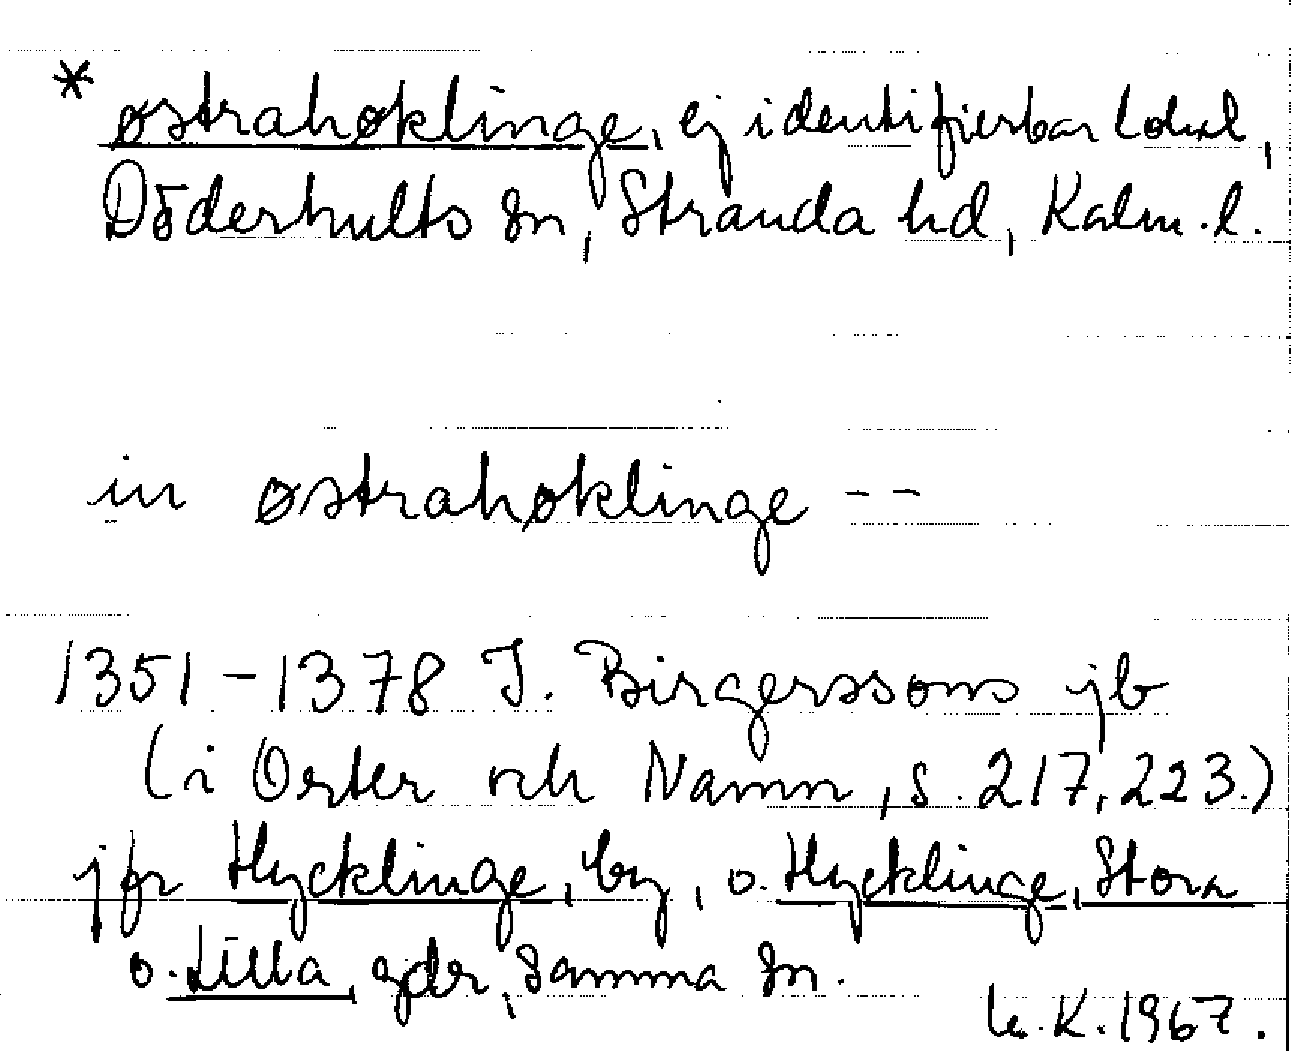 * østrahøklinge, ej identifierbar lokal,
Döderhults sn, Stranda hd, Kalm. l.
in østrahøklinge --
1351-1378 J. Birgerssons jb
(i Orter och Namn, s. 217, 223.)
jfr Hycklinge, by, o. Hycklinge, Stora
o. Lilla, gdr, samma sn.
K. 1967.